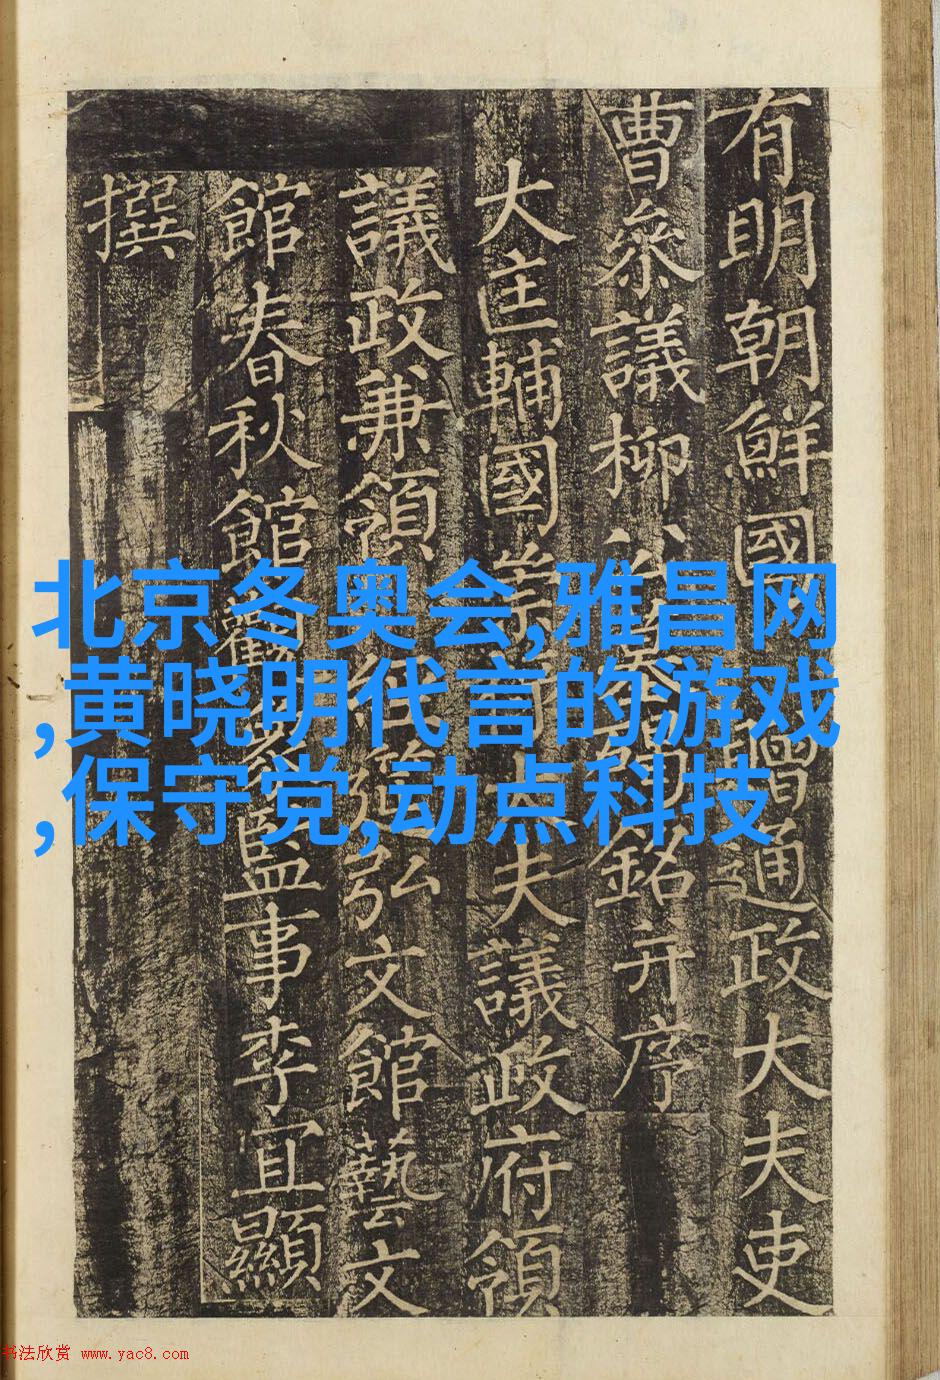 有明朝鮮國贈通政大夫吏
曹參議柳公墓碣銘并序
大匡輔國崇大夫議政府領
議政兼領經筵弘文館藝文
館春秋館觀象監事李宜顯
撰
北京冬奥会,雅昌网
,黄晓明代言的游戏
,保守党,动点科技
书法欣赏 www.yac8.com